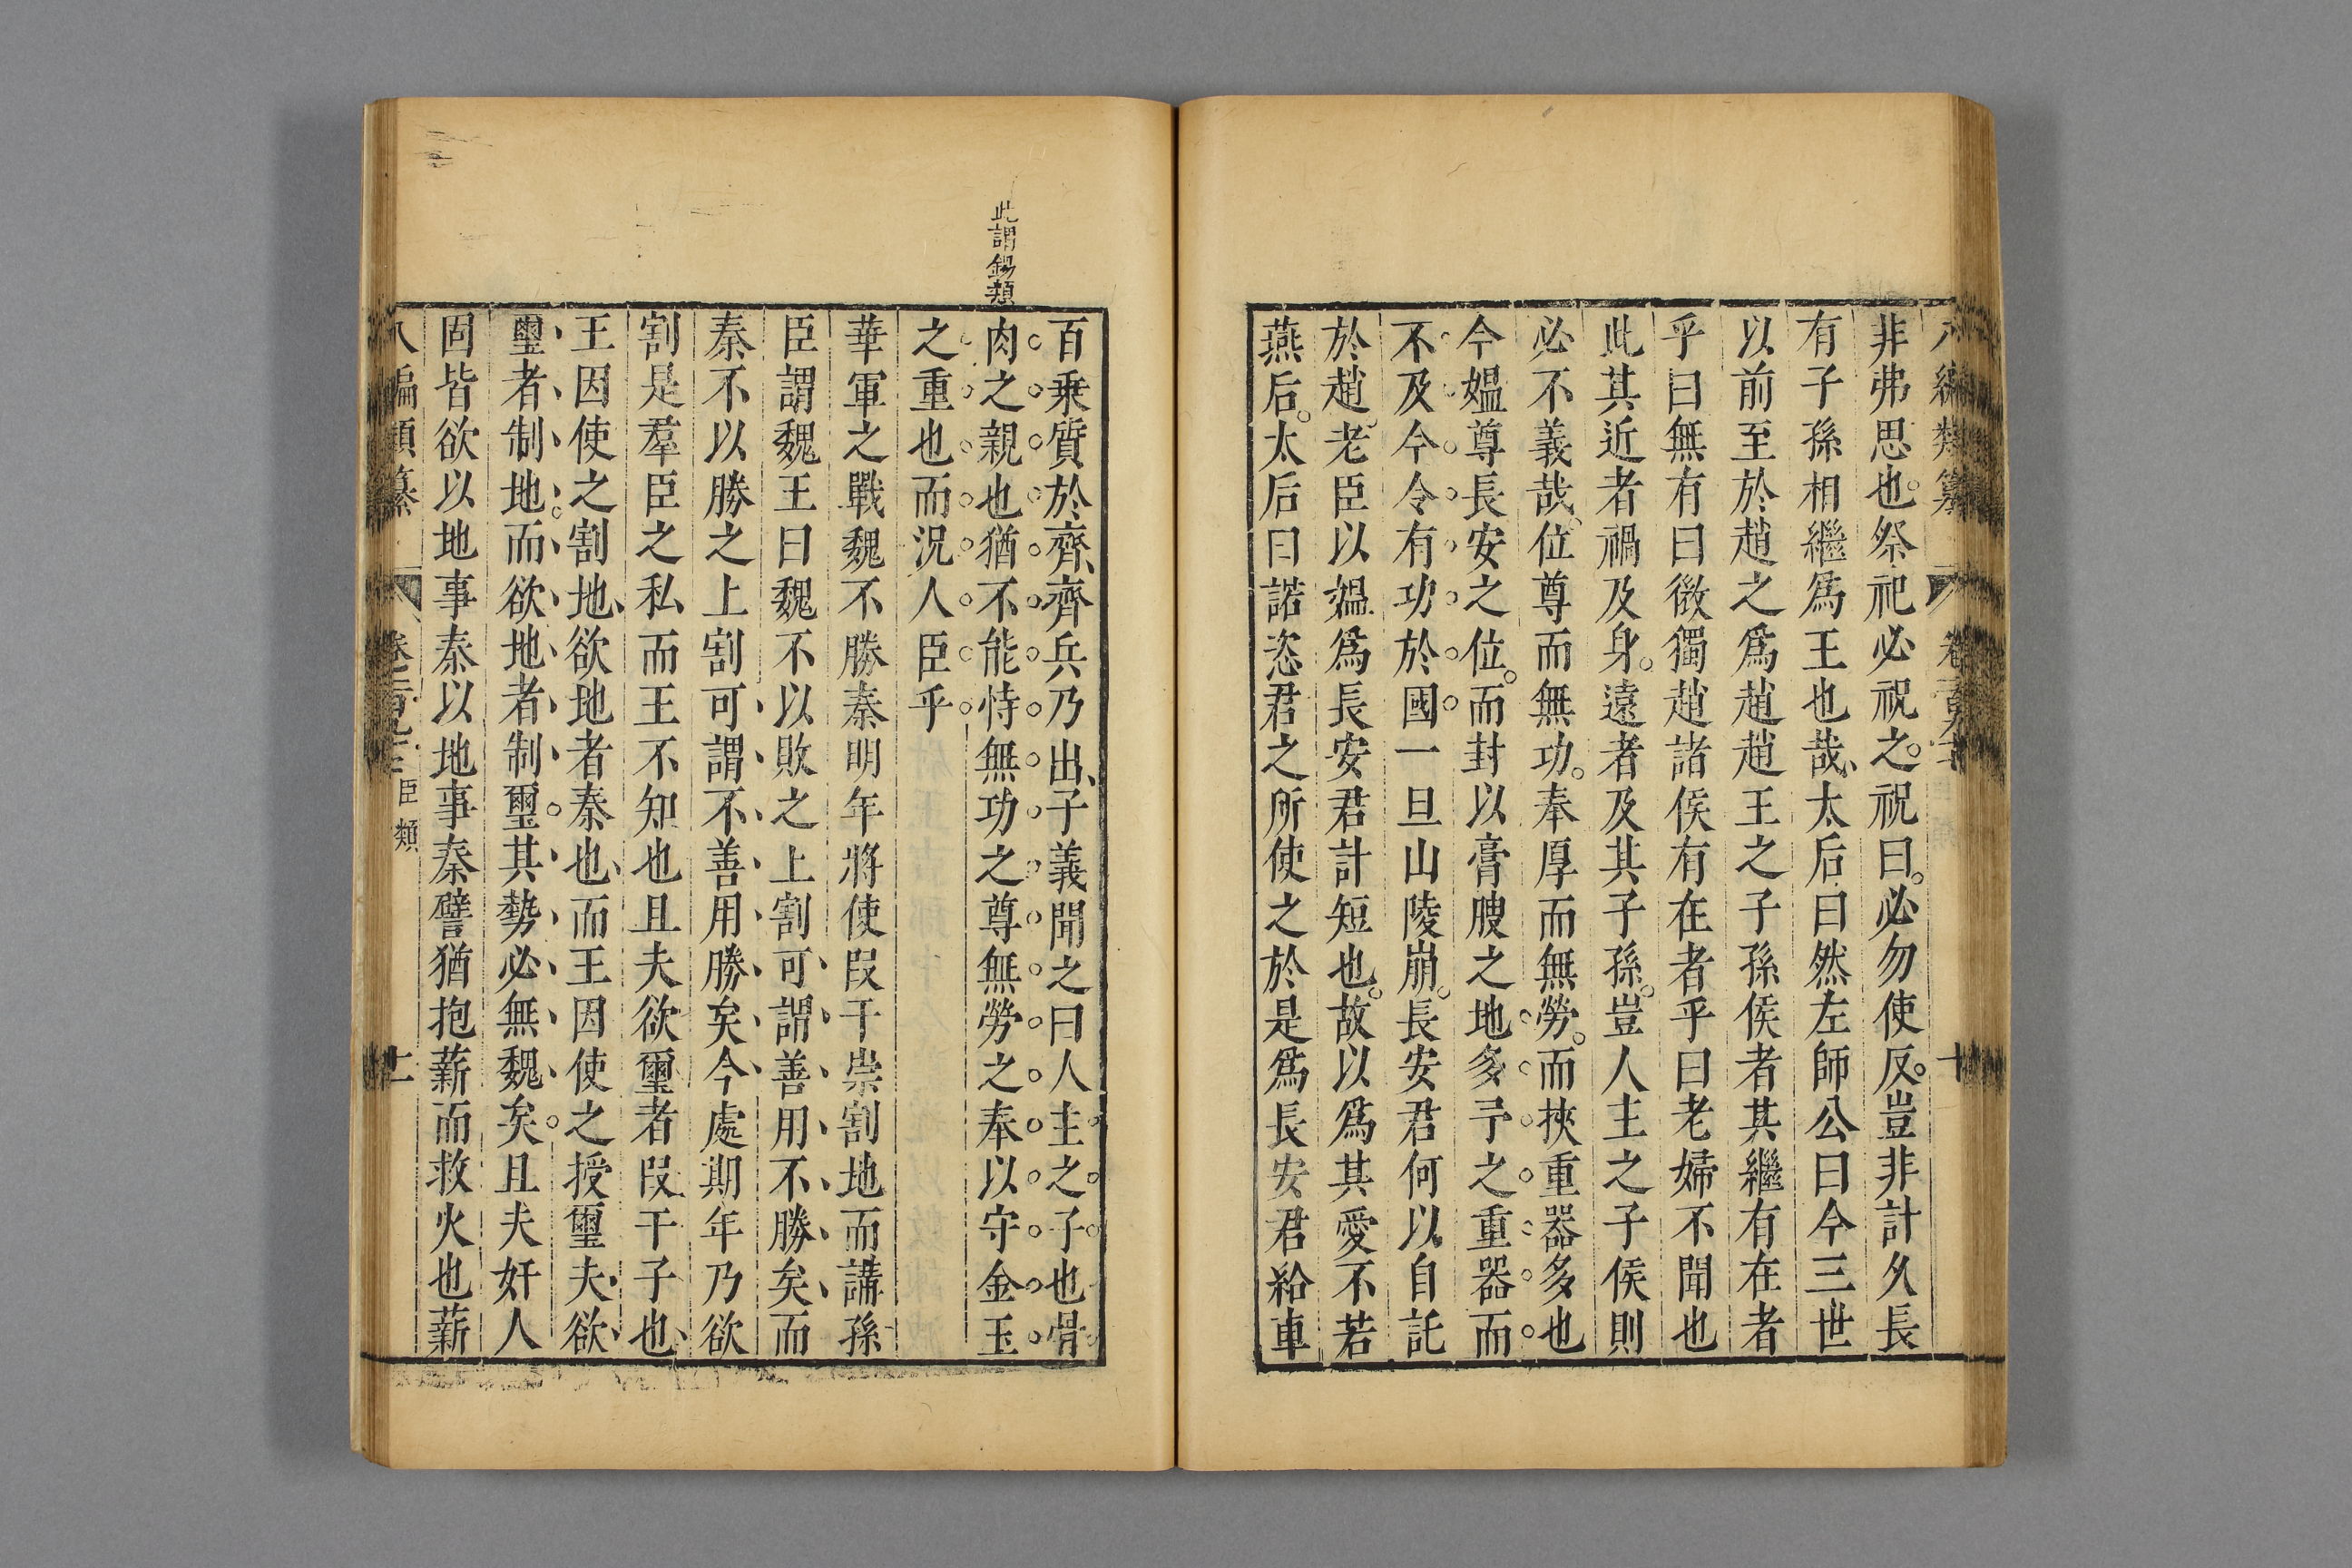 八編類纂 卷一百九十 十
非弗思也祭祀必祝之祝曰必勿使反豈非計久長
有子孫相繼爲王也哉太后曰然左師公曰今三世
以前至於趙之爲趙趙王之子孫侯者其繼有在者
乎曰無有曰微獨趙諸侯有在者乎曰老婦不聞也
此其近者禍及身遠者及其子孫豈人主之子侯則
必不義哉位尊而無功奉厚而無勞而挾重器多也
今媼尊長安之位而封以膏腴之地多予之重器而
不及今令有功於國一旦山陵崩長安君何以自託
於趙老臣以媼爲長安君計短也故以爲其愛不若
燕后太后曰諾恣君之所使之於是爲長安君給車
此謂錫類
百乘質於齊齊兵乃出子義聞之曰人主之子也骨
肉之親也猶不能恃無功之尊無勞之奉以守金玉
之重也而況人臣乎
華軍之戰魏不勝秦明年將使段干崇割地而講孫
臣謂魏王曰魏不以敗之上割可謂善用不勝矣而
秦不以勝之上割可謂不善用勝矣今處期年乃欲
割是羣臣之私而王不知也且夫欲璽者段干子也
王因使之割地欲地者秦也而王因使之授璽夫欲
璽者制地而欲地者制璽其勢必無魏矣且夫奸人
固皆欲以地事秦以地事秦譬猶抱薪而救火也薪
八編類纂 臣類 十一